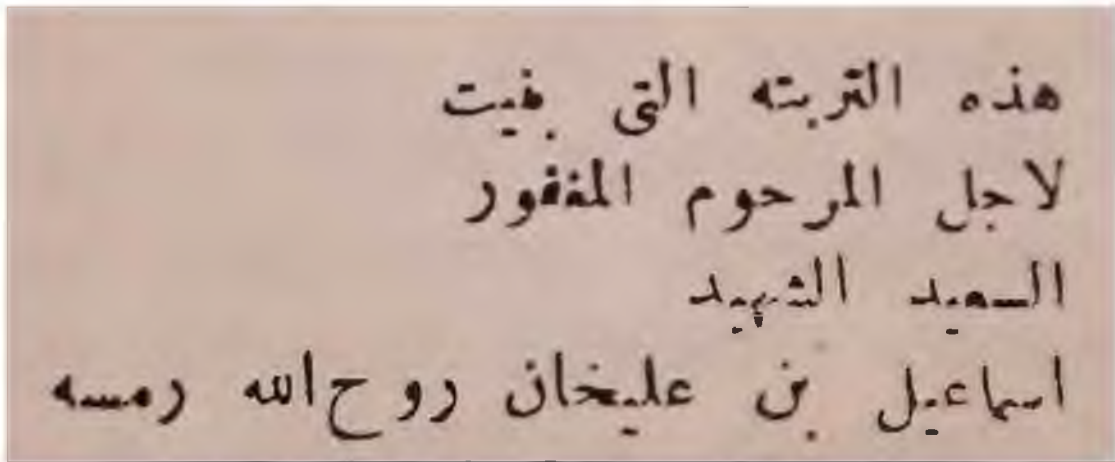 هذه التربته التى بنيت
لاجل المرحوم المغفور
السعيد الشهيد
اسماعيل بن عليخان روح الله رمسه